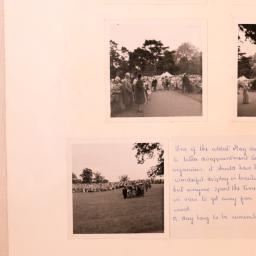 One of the oldest May da
to bitter disappointment to
organisers. It should have b
wonderful display in beautif
but everyone spent the time
in vain to get away from
wind.
A day long to be remembe